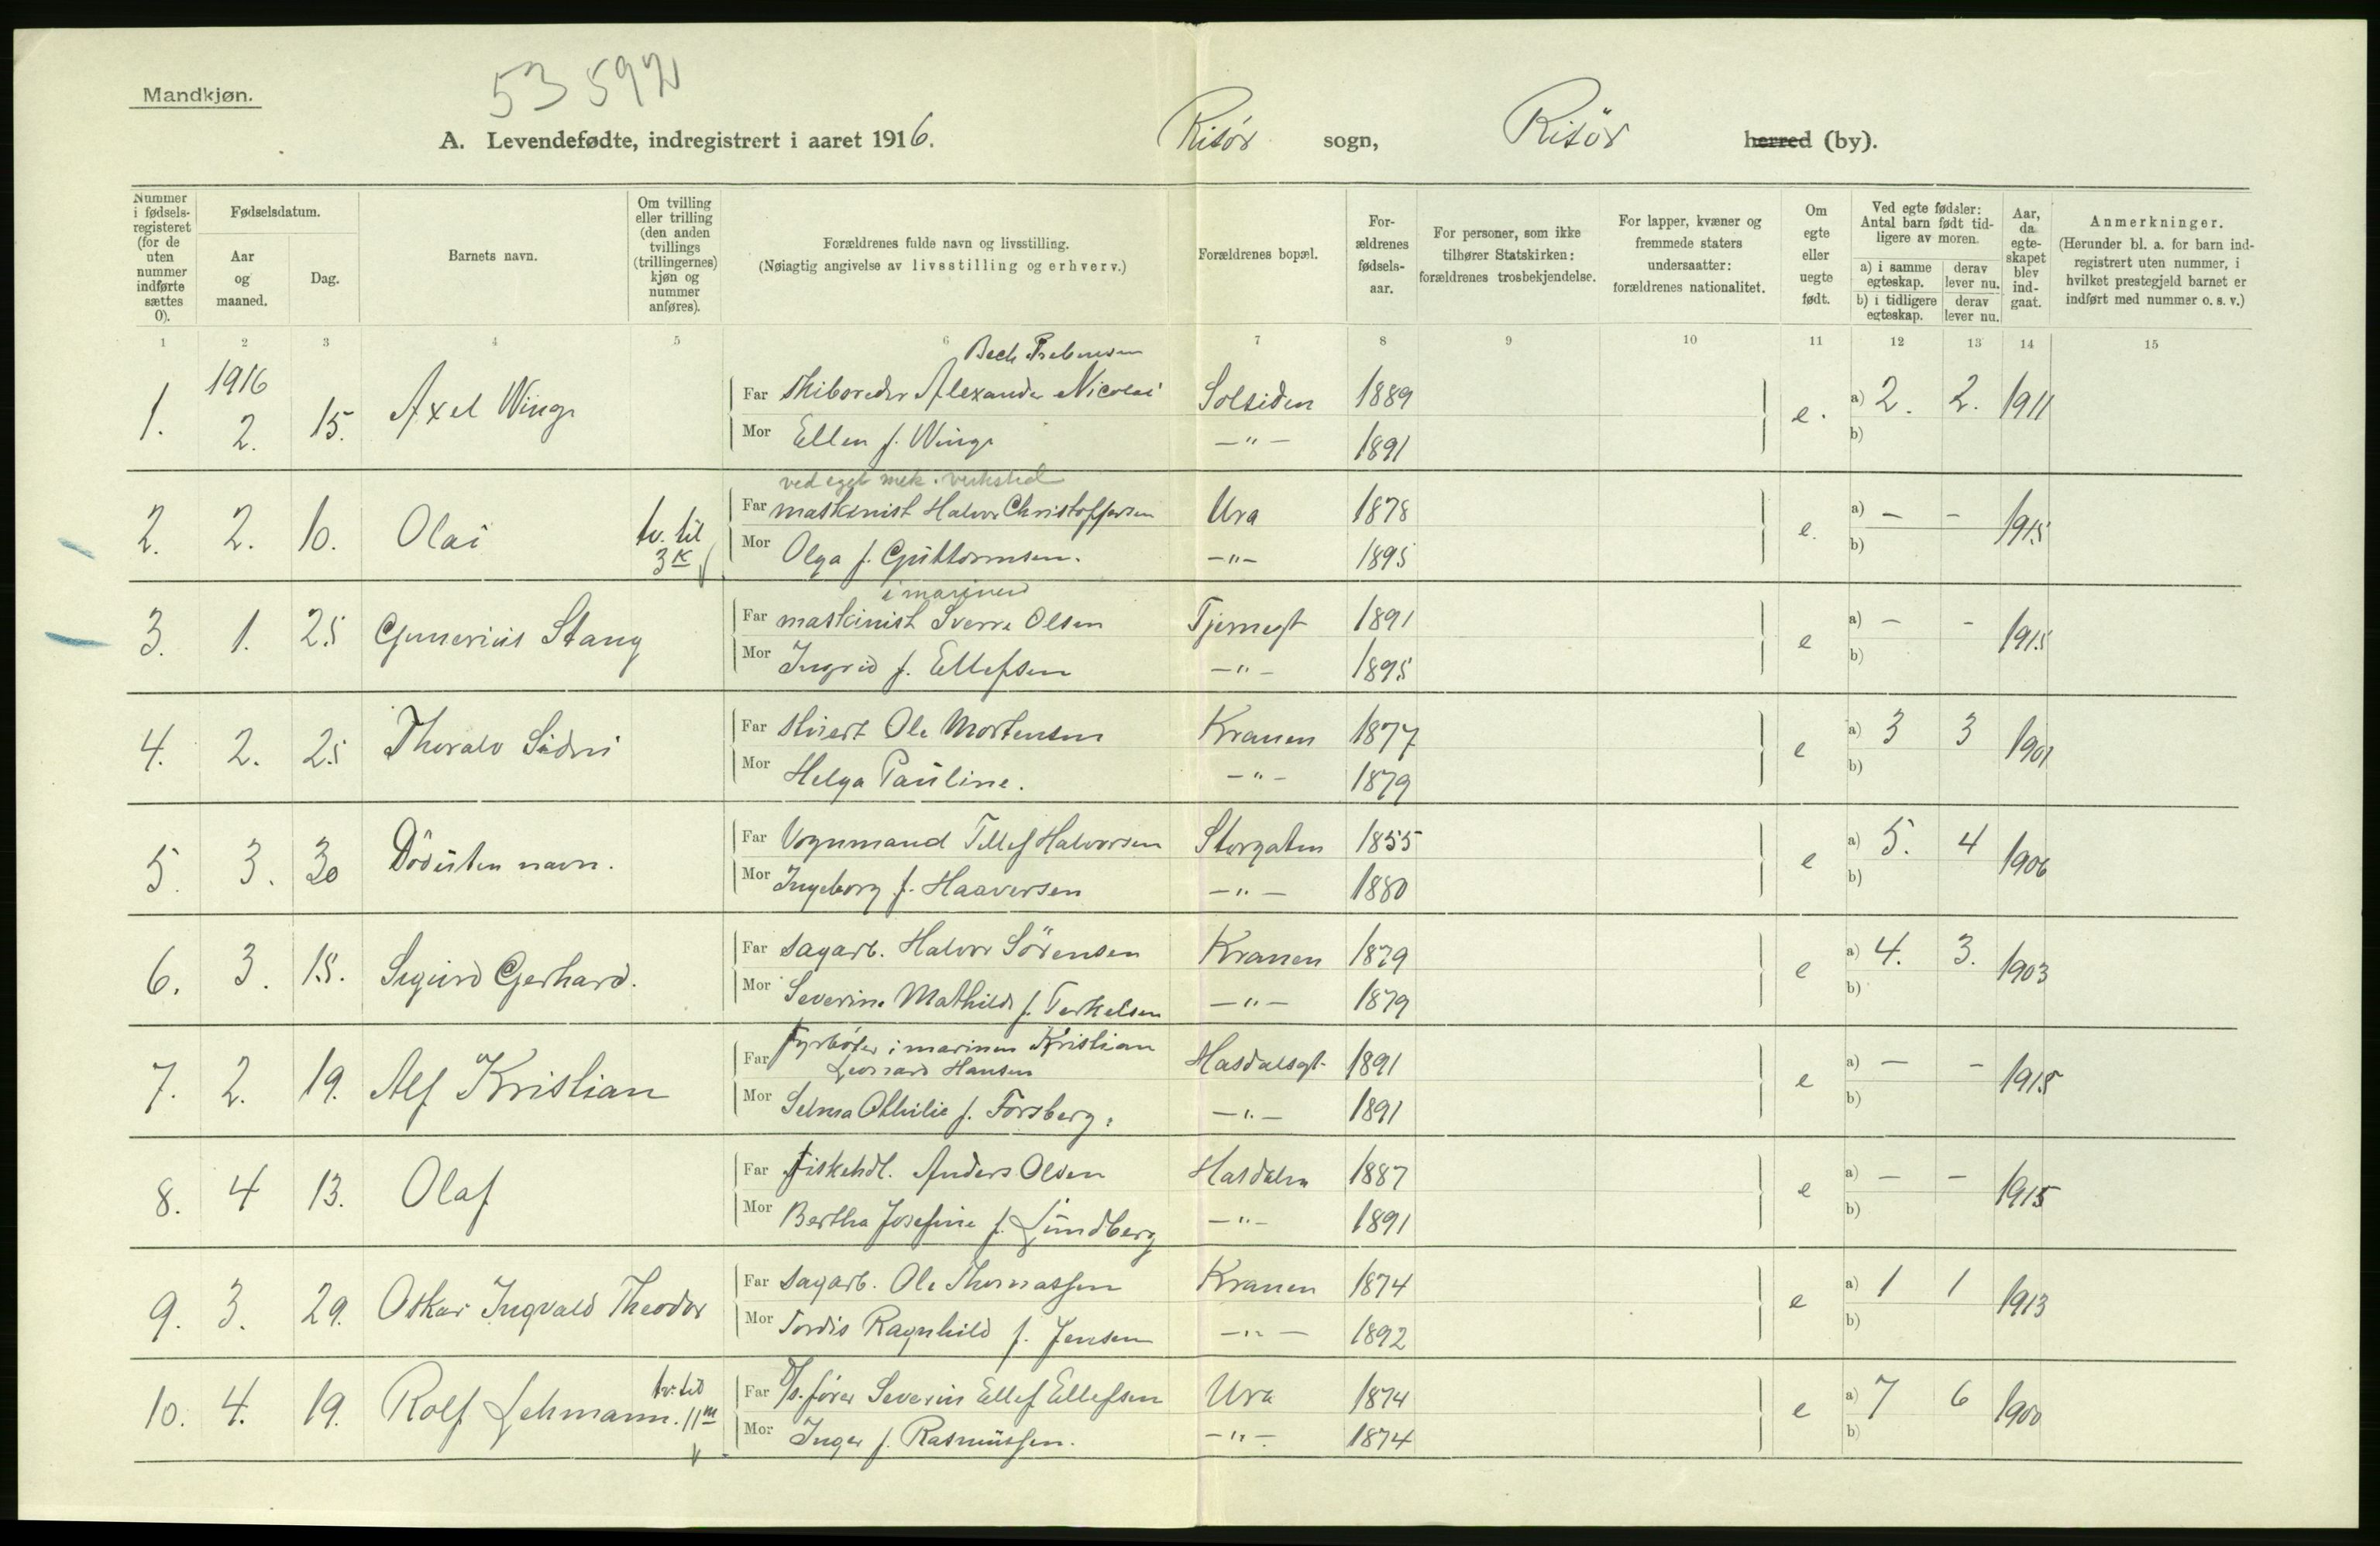 53 592
Mandkjøn.
A. Levendefødte, indregistrert i aaret 1916. Risör sogn, Risör herred (by).
Nummer i fødselsregisteret (for de uten nummer indførte sættes 0).
Fødselsdatum.
Aar og maaned.
Dag.
Barnets navn.
Om tvilling eller trilling (den anden tvillings (trillingernes) kjøn og nummer anføres).
Forældrenes fulde navn og livsstilling.
(Nøiagtig angivelse av livsstilling og erhverv.)
Forældrenes bopæl.
Forældrenes fødselsaar.
For personer, som ikke tilhører Statskirken: forældrenes trosbekjendelse.
For lapper, kvæner og fremmede staters undersaatter: forældrenes nationalitet.
Om egte eller uegte født.
Ved egte fødsler: Antal barn født tidligere av moren.
a) i samme egteskap. derav lever nu.
b) i tidligere egteskap. derav lever nu.
Aar, da egteskapet blev indgaat.
Anmerkninger.
(Herunder bl. a. for barn indregistrert uten nummer, i hvilket prestegjeld barnet er indført med nummer o. s. v.)
1 2 3 4 5 6 7 8 9 10 11 12 13 14 15
1916
Bech Prebensen
1. 2. 15. Axel Winge Far Skibsreder Alexander Nicolai Solsiden 1889 e. a) 2. 2. 1911
Mor Ellen f. Winge —"— 1891 b)
ved eget mek. verksted
2. 2. 10. Olai tv. til 3 K Far maskinist Halvor Christoffersen Ura 1878 e. a) — – 1915
Mor Olga f. Guttormsen. —"— 1895 b)
i marinen
3. 1. 25 Gunerius Stang Far maskinist Sverre Olsen Tjernegt 1891 e a) — – 1915
Mor Ingrid f. Ellefsen —"— 1895 b)
4. 2. 25 Thoralv Sidni Far Ole Mortensen Kranen 1877 e a) 3 3 1901
Mor Helga Pauline. —"— 1879 b)
5. 3. 30 Död uten navn. Far Vognmand Tellef Halvorsen Storgaten 1855 e a) 5. 4 1906
Mor Ingeborg f. Haaversen —"— 1880 b)
6. 3. 15. Sigurd Gerhard. Far Sagarb. Halvor Sörensen Kranen 1879 e a) 4. 3. 1903
Mor Severine Mathilde f. Terkelsen —"— 1879 b)
7. 2. 19. Alf Kristian Far Fyrböter i marinen Kristian Leonard Hansen Hasdalsgt. 1891 e a) — – 1915
Mor Selma Othilie f. Forsberg. —"— 1891 b)
8. 4 13. Olaf Far Fiskehdl. Anders Olsen Hasdalen 1887 e a) — – 1915
Mor Bertha Josefine f. Lundberg —"— 1891 b)
9. 3. 29. Oskar Ingvald Theodor Far Sagarb. Ole Thomassen Kranen 1874 e a) 1 1 1913
Mor Tordis Ragnhild f. Jensen —"— 1892 b)
10. 4. 19. Rolf Lehmann. tv. til 11 m Far D/s. fører Severin Ellef Ellefsen Ura 1874 e a) 7 6 1900
Mor Inger f. Rasmussen. —"— 1874 b)